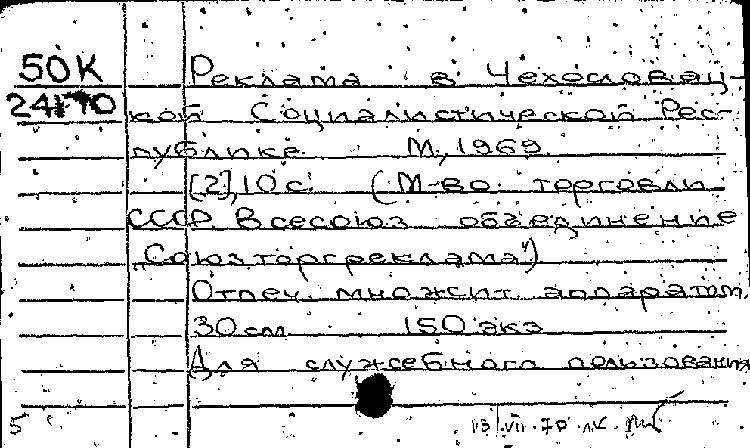 50К
24170
Реклама в Чехословац-
кой Социалистической Рес-
публике М., 1969.
[2], 10 с. (М-во торговли
СССР. Всесоюз объединение
„Союзторгреклама")
Отпеч. множит. аппаратом
30 см 150 экз
Для служебного пользования
5
13 VII-70